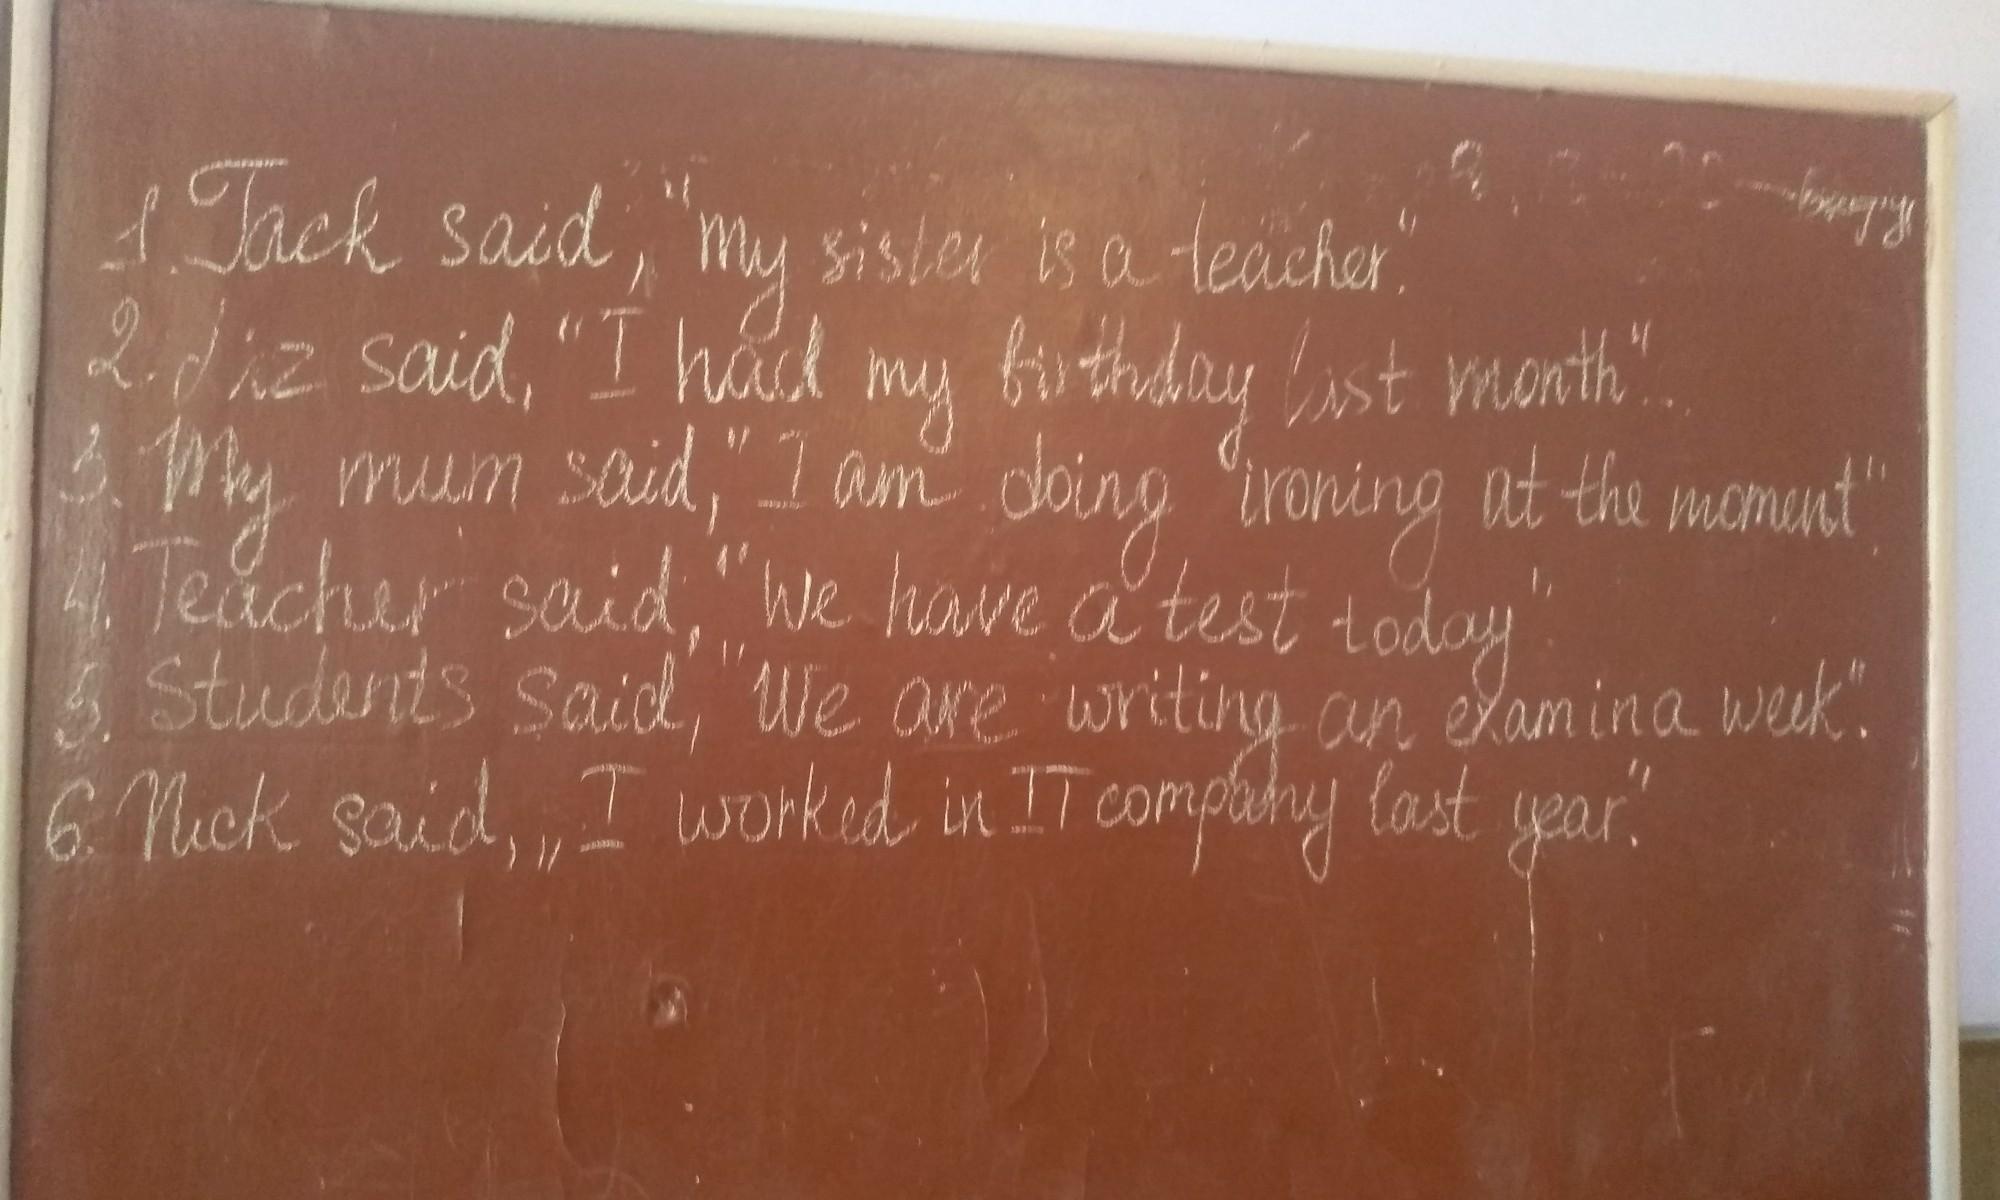 1. Jack said, "My sister is a teacher."
2. Liz said, "I had my birthday last month".
3. My mum said, "I am doing ironing at the moment".
4. Teacher said, "We have a test today".
5. Students said, "We are writing an exam in a week".
6. Nick said, „I worked in IT company last year."